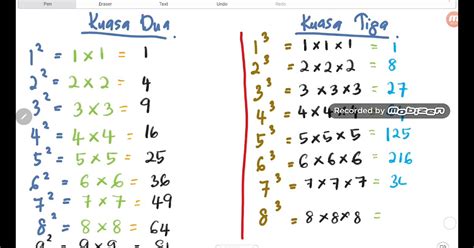 Pen Eraser Text Undo
Kuasa Dua.
1² = 1 × 1 = 1
2² = 2 × 2 = 4
3² = 3 × 3 = 9
4² = 4 × 4 = 16
5² = 5 × 5 = 25
6² = 6 × 6 = 36
7² = 7 × 7 = 49
8² = 8 × 8 = 64
9² = 9 × 9 = 81
Kuasa Tiga.
1³ = 1 × 1 × 1 = 1
2³ = 2 × 2 × 2 = 8
3³ = 3 × 3 × 3 = 27
4³ = 4 × 4
Recorded by mobizen
5³ = 5 × 5 × 5 = 125
6³ = 6 × 6 × 6 = 216
7³ = 7 × 7 × 7 = 34
8³ = 8 × 8 × 8 =